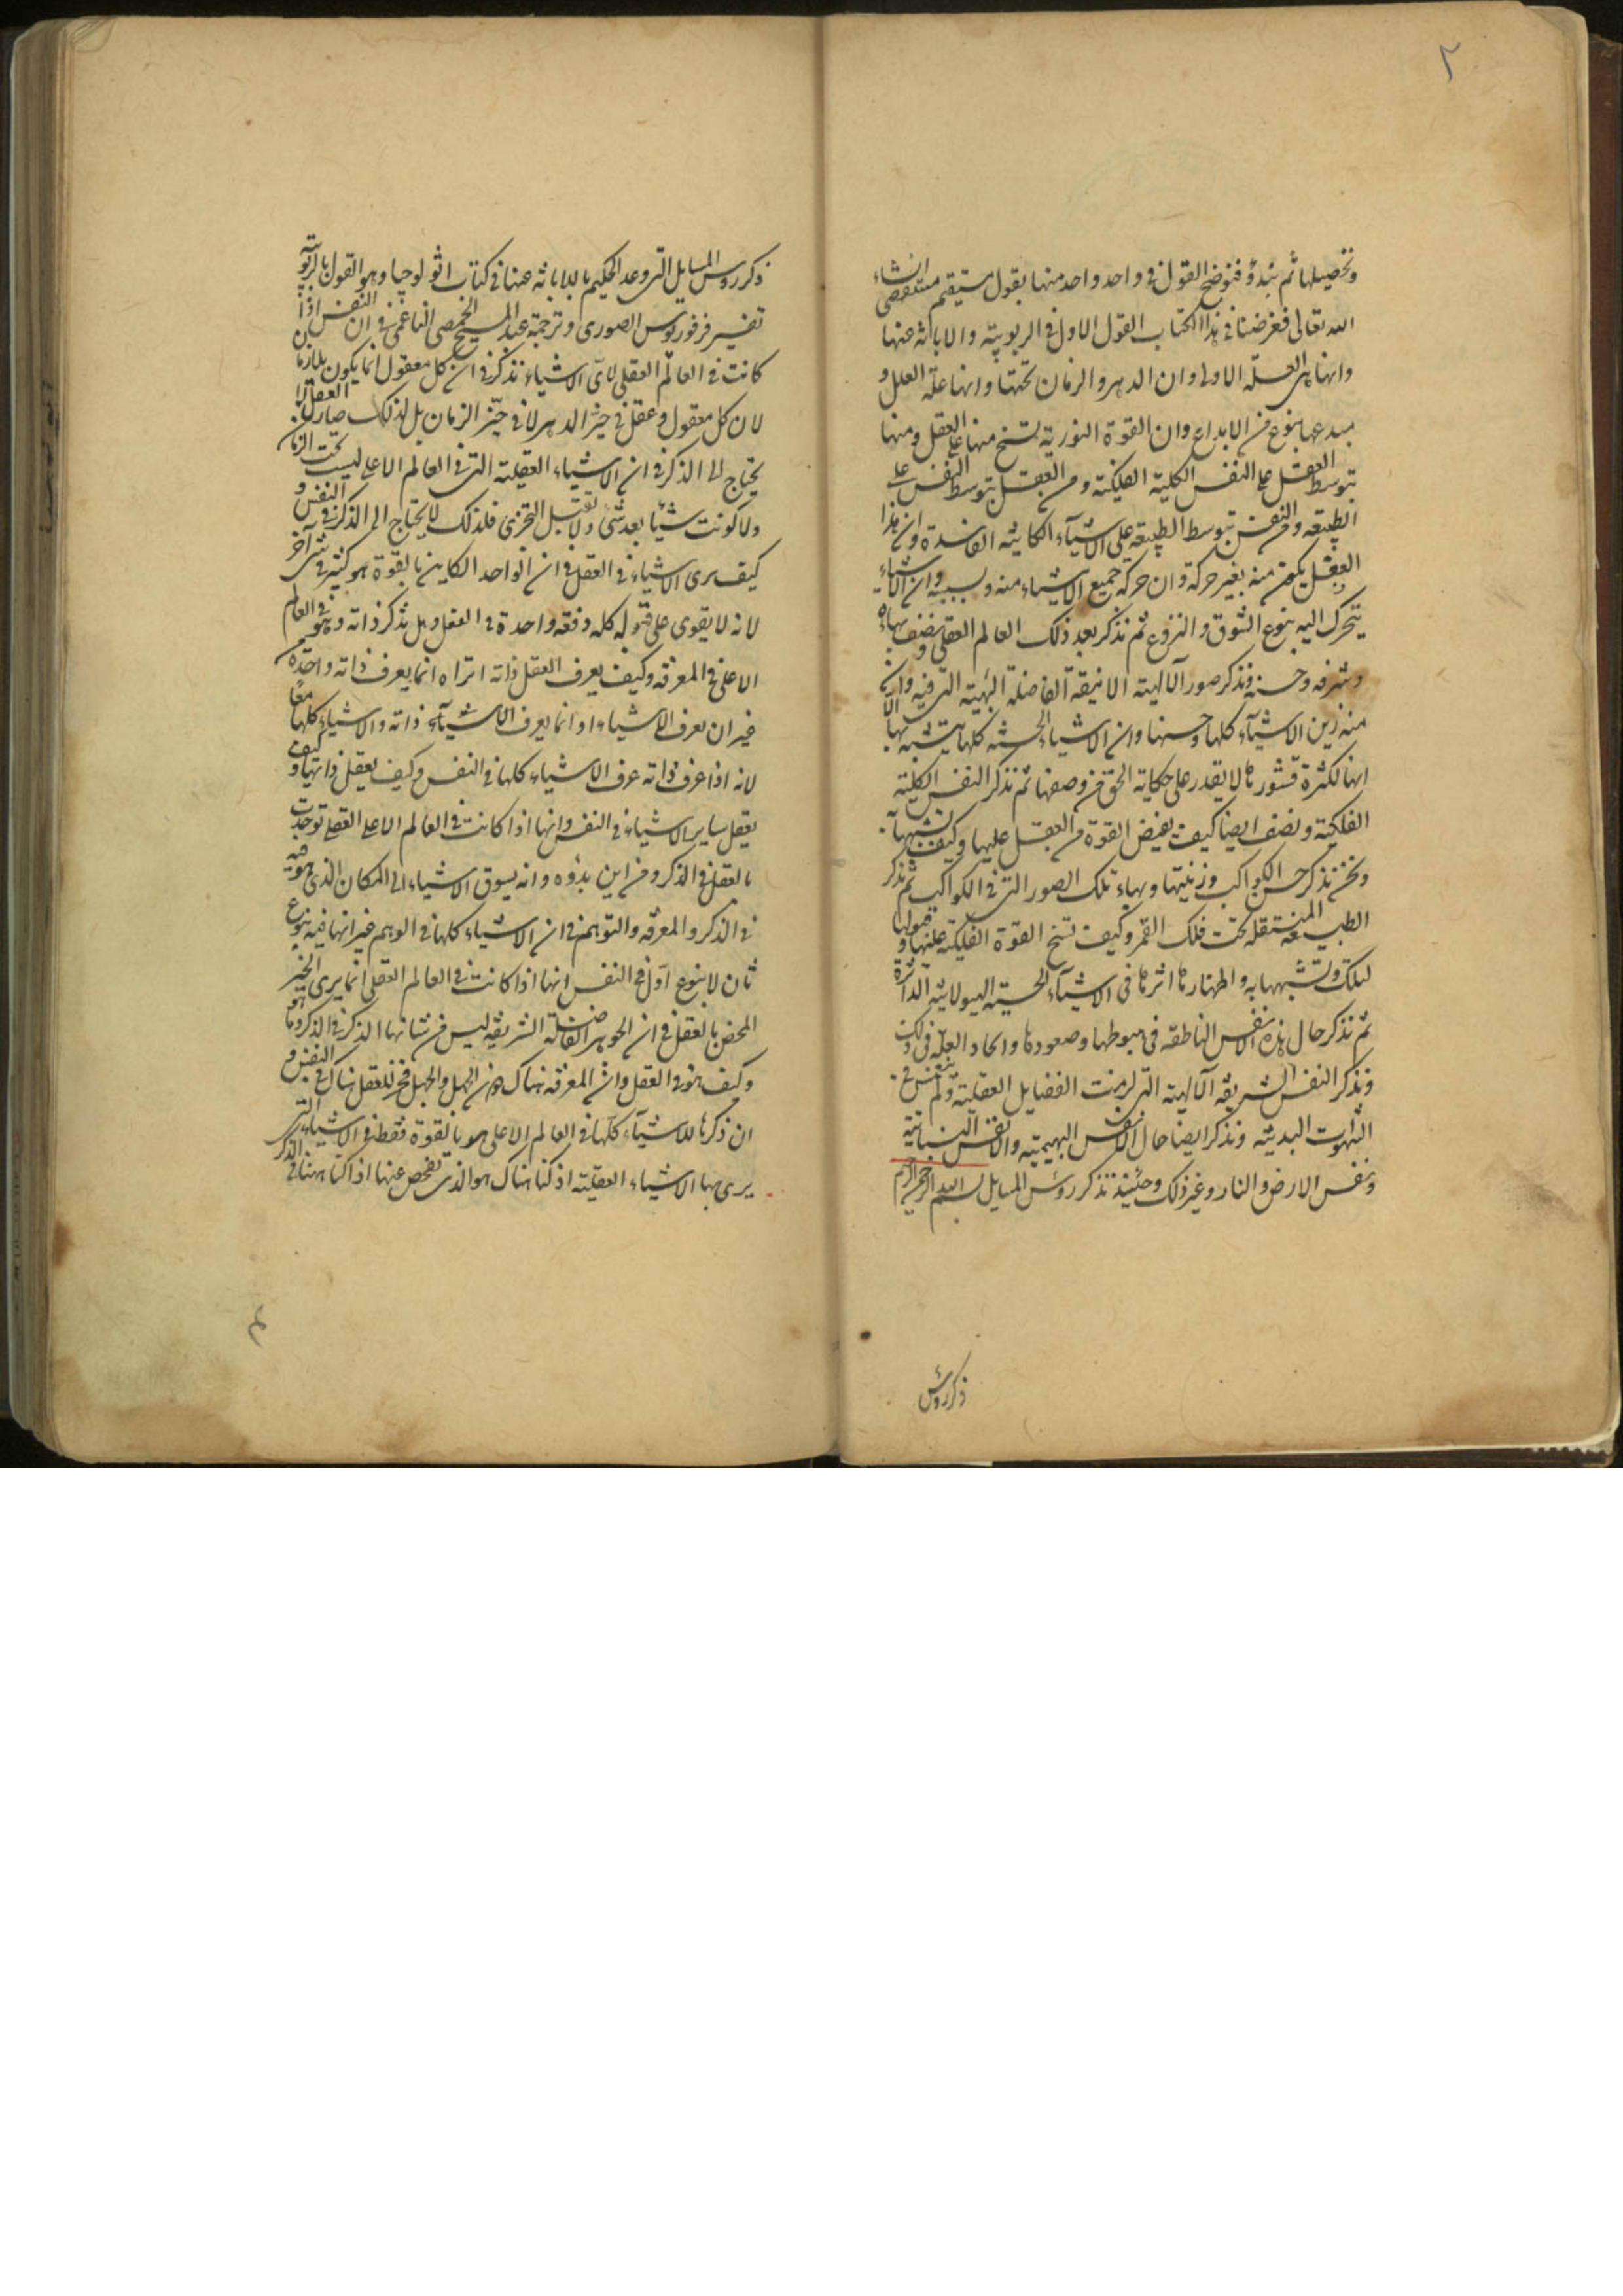 ٢
وتحصيلها ثم نبدؤ فنوضح القول فى واحد واحد منها بقول مستقيم مستقصى انشاء
الله تعالى فغرضنا فى هذا الكتاب القول الاول فى الربوبية والابانة عنها
وانها هى العلة الاولى وان الدهر والزمان تحتها وانها علة العلل و
مبدعها بنوع من الابداع وان القوة النورية تسنح منها على العقل ومنها
بتوسط العقل على النفس الكلية الفلكية ومن العقل بتوسط النفس على
الطبيعة ومن النفس بتوسط الطبيعة على الاشياء الكاينة الفاسدة وان هذا
الفعل يكون منه بغير حركة وان حركة جميع الاشياء منه وبسببه وان الاشياء
يتحرك اليه بنوع الشوق والنزوع ثم نذكر بعد ذلك العالم العقلى ونصف بهاءه
وشرفه وحسنه ونذكر صور الآلهية الانيقة الفاضلة البهية التى فيه وان
منه زين الاشياء كلها وحسنها وان الاشياء الحسية كلها يتشبه بها الا
انها لكثرة قشورها لا يقدر على حكاية الحق من وصفها ثم نذكر النفس الكلية
الفلكية ونصف ايضا كيف يفيض القوة من العقل عليها وكيف تشبهها به
ونحن نذكر حسن الكواكب وزينتها وبهاء تلك الصور التى فى الكواكب ثم نذكر
الطبيعة المنتقلة تحت فلك القمر وكيف تسنح القوة الفلكية عليها وقبولها
لتلك وتشبهها به واظهارها اثرها فى الاشياء الحسية الهيولانية الداثرة
ثم نذكر حال هذه الانفس الناطقة فى هبوطها وصعودها واتحاد العلة فى ذلك
ونذكر النفس الشريفة الآلهية التى لزمت الفضايل العقلية ولم تنغمس فى
الشهوات البدنية ونذكر ايضا حال الانفس البهيمية والانفس النباتية
ونفس الارض والنار وغير ذلك وحينئذ نذكر روس المسايل بسم الله الرحمن الرحيم
ذكر روس
ذكر روس المسايل التى وعد الحكيم بالابانة عنها فى كتاب اثولوجيا وهو القول بالربوبية
تفسير فرفوريوس الصورى وترجمة عبد المسيح الحمصى الناعمى فى ان النفس اذا
كانت فى العالم العقلى لاى الاشياء تذكر فى ان كل معقول انما يكون بلا زمان
لان كل معقول وعقل فى حيز الدهر لا فى حيز الزمان بل لذلك صار العقل لا
يحتاج الى الذكر فى ان الاشياء العقلية التى فى العالم الاعلى ليست تحت الزمان
ولا كونت شيئا بعد شئ ولا تقبل التجزى فلذلك لا يحتاج الى الذكر فى النفس و
كيف يرى الاشياء فى العقل فى ان الواحد الكاين بالقوة هو كثير فى شئ آخر
لانه لا يقوى على قبوله كله دفعة واحدة فى العقل وهل تذكر ذاته وهو فى العالم
الاعلى فى المعرفة وكيف يعرف العقل ذاته اتراه انما يعرف ذاته وحده
غير ان يعرف الاشياء او انما يعرف الاشياء ذاته والاشياء كلها معا
لانه اذا عرف ذاته عرف الاشياء كلها فى النفس وكيف يعقل ذاتها وكيف
يعقل ساير الاشياء فى النفس وانها اذا كانت فى العالم الاعلى العقلى توحدت
بالعقل فى الذكر ومن اين بدؤه وانه يسوق الاشياء الى المكان الذى هو فيه
فى الذكر والمعرفة والتوهم فى ان الاشياء كلها فى الوهم غير انها فيه بنوع
ثان لا بنوع اول فى النفس انها اذا كانت فى العالم العقلى انما يرى الخير
المحض بالعقل فى ان الجوهر الفاضلة الشريفة ليس من شانها الذكر فى الذكر وما هو
وكيف هو فى العقل وان المعرفة هناك دون الجهل والجهل فخر للعقل هناك فى النفس و
ان ذكرها للاشياء كلها فى العالم الاعلى هو بالقوة فقط فى الاشياء التى
يرى بها الاشياء العقلية اذ كنا هناك هو الذى نفحص عنها اذا كنا ههنا فى الذكر